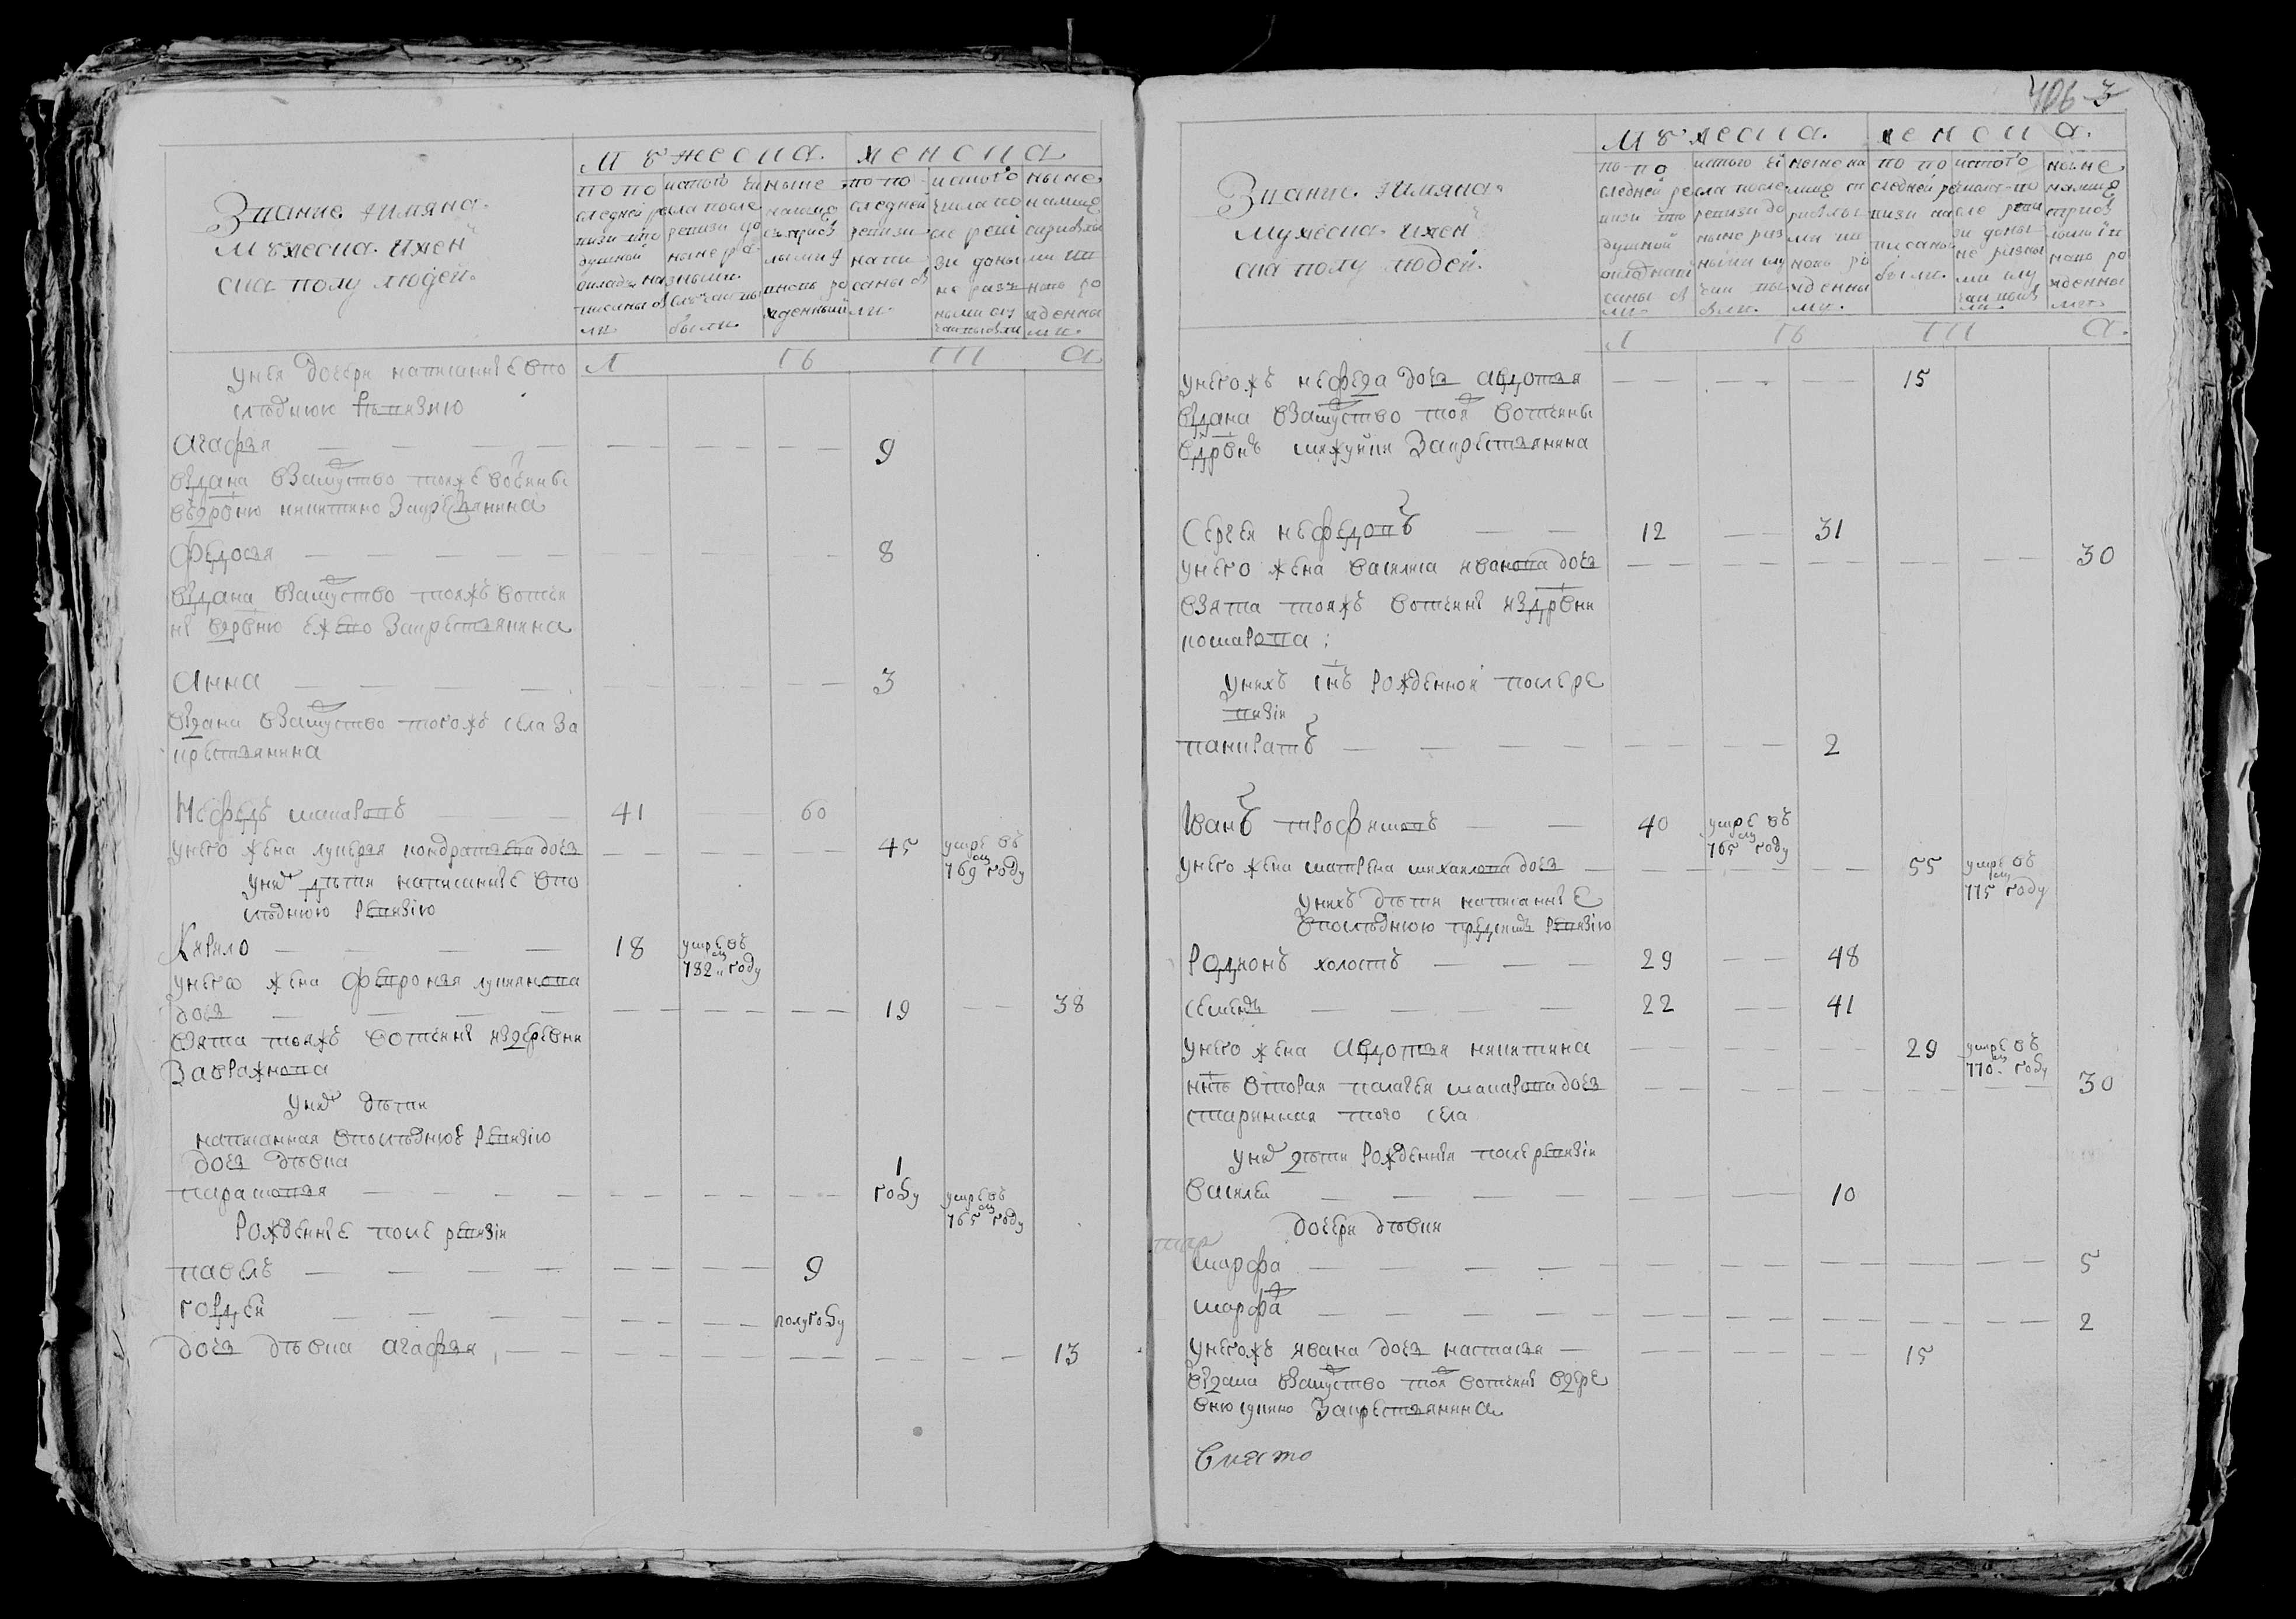 Звание Имяна
мужеска и жен
ска полу людей
Мужеска. женска
по по
следней ре
визи в по
душной
оклад на
писаны бы
ли
ис того чи
сла после
ревизи до
ныне ра
зными
случаи вы
были.
ныне
на лицо
с прибы
лыми и
вновь ро
жденными
по по
следней
ревизи
напи
саны бы
ли.
ис того
числа по
сле реви
зи до ны
не разз
ными слу
чаи выбыли
ныне
на лицо
с прибылы
ми и в
новь ро
жденны
ми.
Л ѣ т а
у нея дочери написанные въ по
следнюю ревизию
Агафья — 9
выдана взамужство тояже вотчины
въ деревню никитино за крестьянина
Федосья — 8
выдана взамужство тояжъ вотчи
ны въ деревню ежево за крестьянина
Анна — 3
выдана взамужство тогожъ села за
крестьянина
Нефедъ макаровъ 41 — 60
у него жена лукерья кондратьева дочь — 45 умре въ
769 м году
у них дѣти написанные въ по
следнюю ревизию
Кирило — 18 умре въ
782 м году
у него жена февронья лукиянова
дочь — 19 — 38
взята тояжъ вотчины из деревни
Завражнова
у них дѣти
написанная въ последнюю ревизию
дочь дѣвка
парасковья — 1
году умре въ
765 м году
Рожденные после ревизии
павелъ — 9
гордей — полугоду
дочь дѣвка агафья, — 13
406 3
Звание Имяна
мужеска и жен
ска полу людей.
Мужеска. женска.
по по
следней ре
визи в по
душной
оклад напи
саны бы
ли
ис того чи
сла после
ревизи до
ныне раз
ными слу
чаи вы
были.
ныне на
лицо с п
рибылы
ми и в
новь ро
жденны
ми.
по по
следней ре
визи на
писаны
были.
ис того
числа по
сле реви
зи до ны
не разны
ми слу
чаи выбы
ли
ныне
на лицо
с прибы
лыми и
новь ро
жденны
ми
Л ѣ т а.
у негожъ нефеда дочь авдотья — 15
выдана взамужство тояж вотчины
въ деревню за крестьянина
Сергей нефедовъ — 12 — 31
у него жена василиса иванова дочь — 30
взята тояжъ вотчины из деревни
комарова;
у нихъ сынъ рожденной после ре
визии
панкратъ — 2
Иванъ трофимовъ — 40 умре въ
765 м году
у него жена матрена михайлова дочь — 55 умре въ
775 м году
у нихъ дѣти написанные
въ последнюю пред сим ревизию
Родионъ холостъ — 29 — 48
семенъ — 22 — 41
у него жена авдотья никитина — 29 умре въ
770 м году
нынѣ вторая палагея макарова дочь — 30
старинная того села
у них дѣти рожденныя после ревизии
василей — 10
дочери дѣвки
марфа — 5
марфа ж — 2
у негожъ ивана дочь настасья — 15
выдана взамужство тояж вотчины въ дере
вню за крестьянина
Внято